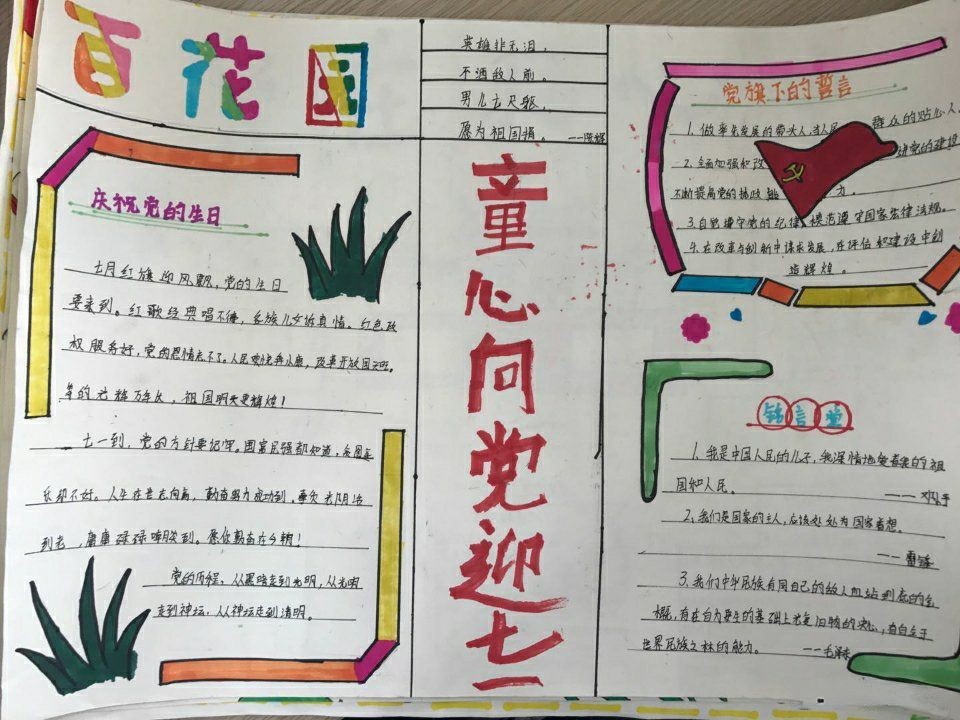 百花园
英雄非无泪，
不洒敌人前。
男儿七尺躯，
愿为祖国捐。 ——陈辉
童心向党迎七一
庆祝党的生日
七月红旗迎风飘，党的生日
要来到。红歌经典唱不倦，各族儿女诉真情。红色政
权服务好，党的恩情忘不了。人民奔小康，改革开放
的光辉万年长，祖国明天更辉煌！
七一到，党的方针要记牢。国富民强都知道，
却不好。人生在世志向高，勤奋努力成功到。
到老，庸庸碌碌唾骂到。愿你勤奋在今朝！
党的历程，从黑暗走到光明，从光明
走到神坛，从神坛走到清明。
党旗下的誓言
1、做率先发展的带头人，当人民群众的贴心人
2、全面加强和改 党的建设
不断提高党的执政能力。
3、自觉遵守党的纪律，模范遵守国家法律法规。
4、在改革与创新中谋求发展，在评估和建设中创
造辉煌。
铭言堂
1、我是中国人民的儿子，我深情地爱着我的祖
国和人民。 ——邓小平
2、我们是国家的主人，应该处处为国家着想。
——雷锋
3、我们中华民族有同自己的敌人血战到底的气
概，有在自力更生的基础上光复旧物的决心，有自立于
世界民族之林的能力。 ——毛泽东